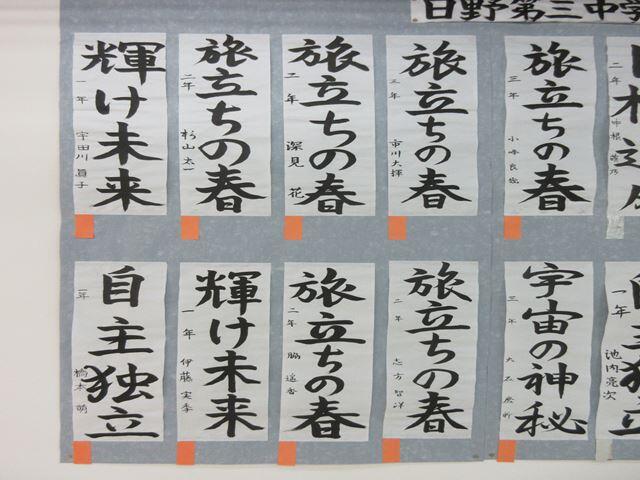 日野第三中学
輝け未来
一年 宇田川 真子
旅立ちの春
二年 杉山 太一
旅立ちの春
二年 深見 花
旅立ちの春
三年 市川大輝
旅立ちの春
三年
二年
自主独立
一年 橋本 萌
輝け未来
一年 伊藤 実季
旅立ちの春
二年 脇 遥香
旅立ちの春
二年 志方 智洋
宇宙の神秘
三年
一年 池内亮次